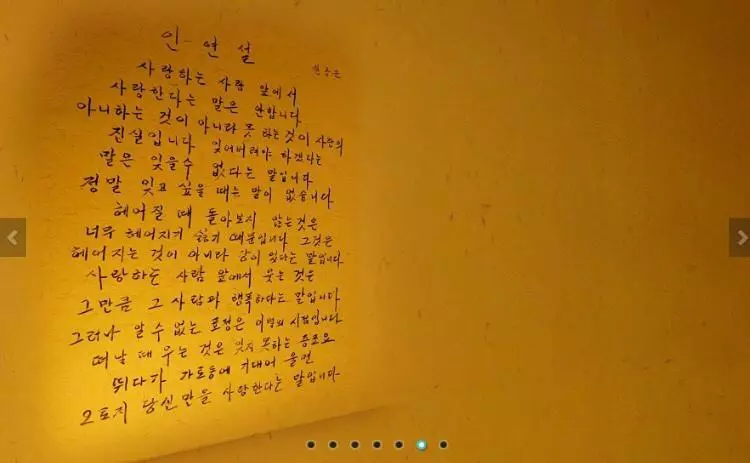 인연설
한용운
사랑하는 사람 앞에서
사랑한다는 말은 안합니다
아니하는 것이 아니라 못하는 것이 사랑의
진실입니다 잊어버려야 하겠다는
말은 잊을수 없다는 말입니다
정말 잊고 싶을 때는 말이 없습니다
헤어질 때 돌아보지 않는것은
너무 헤어지기 싫기 때문입니다 그것은
헤어지는 것이 아니라 같이 있다는 말입니다
사랑하는 사람 앞에서 웃는 것은
그만큼 그 사람과 행복하다는 말입니다
그러나 알 수 없는 표정은 이별의 시점입니다
떠날 때 우는 것은 잊지 못하는 증표요
뛰다가 가로등에 기대어 울면
오로지 당신만을 사랑한다는 말입니다